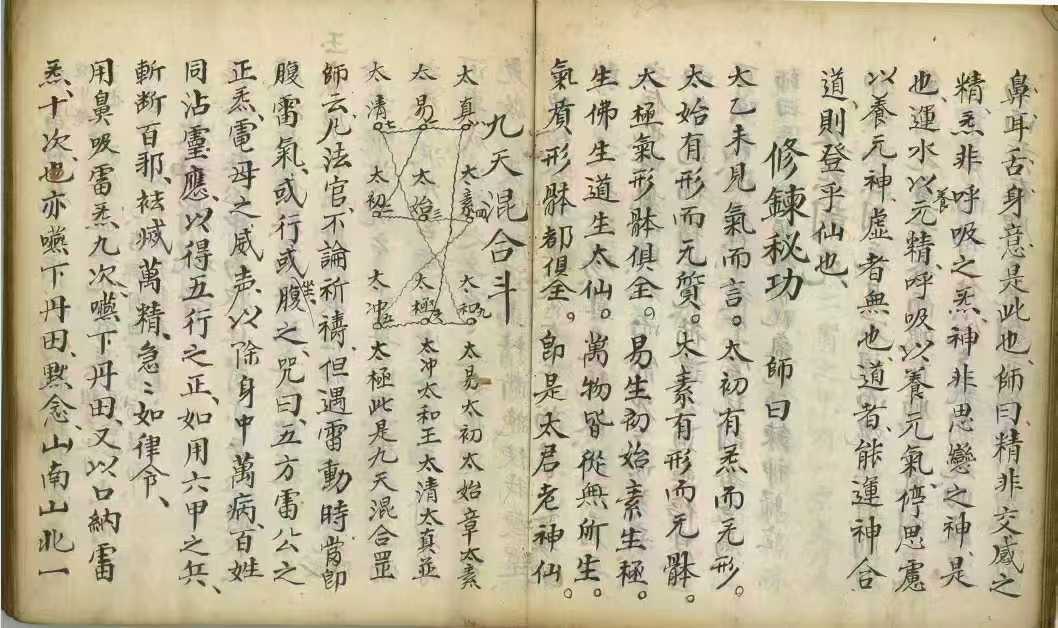 鼻耳舌身意是此也師曰精非交感之
精炁非呼吸之炁神非思戀之神是
也運水以養元精呼吸以養元氣停思慮
以養元神虛者無也道者能運神合
道則登乎仙也
修鍊秘功 師曰
太乙未見氣而言。太初有炁而无形。
太始有形而无質。太素有形而无骵。
太極氣形骵俱全。易生初始素生極。
生佛生道生太仙。萬物皆從無所生。
氣質形骵都俱全。卽是太君老神仙。
九天混合斗
太真 太素四 太和九 太易太初太始章太素
太易一 太始三 太極 太冲太和王太清太真並
太清七 太初二 太冲 太極此是九天混合罡
師云凡法官不論祈禱但遇雷動時當卽
腹雷氣或行或坐腹之咒曰五方雷公之
正炁電母之威声以除身中萬病百姓
同沾靈應以得五行之正如用六甲之兵
斬断百邪袪滅萬精急〻如律令
用鼻吸雷炁九次嚥下丹田又以口納雷
炁十次也亦嚥下丹田黙念山南山北一